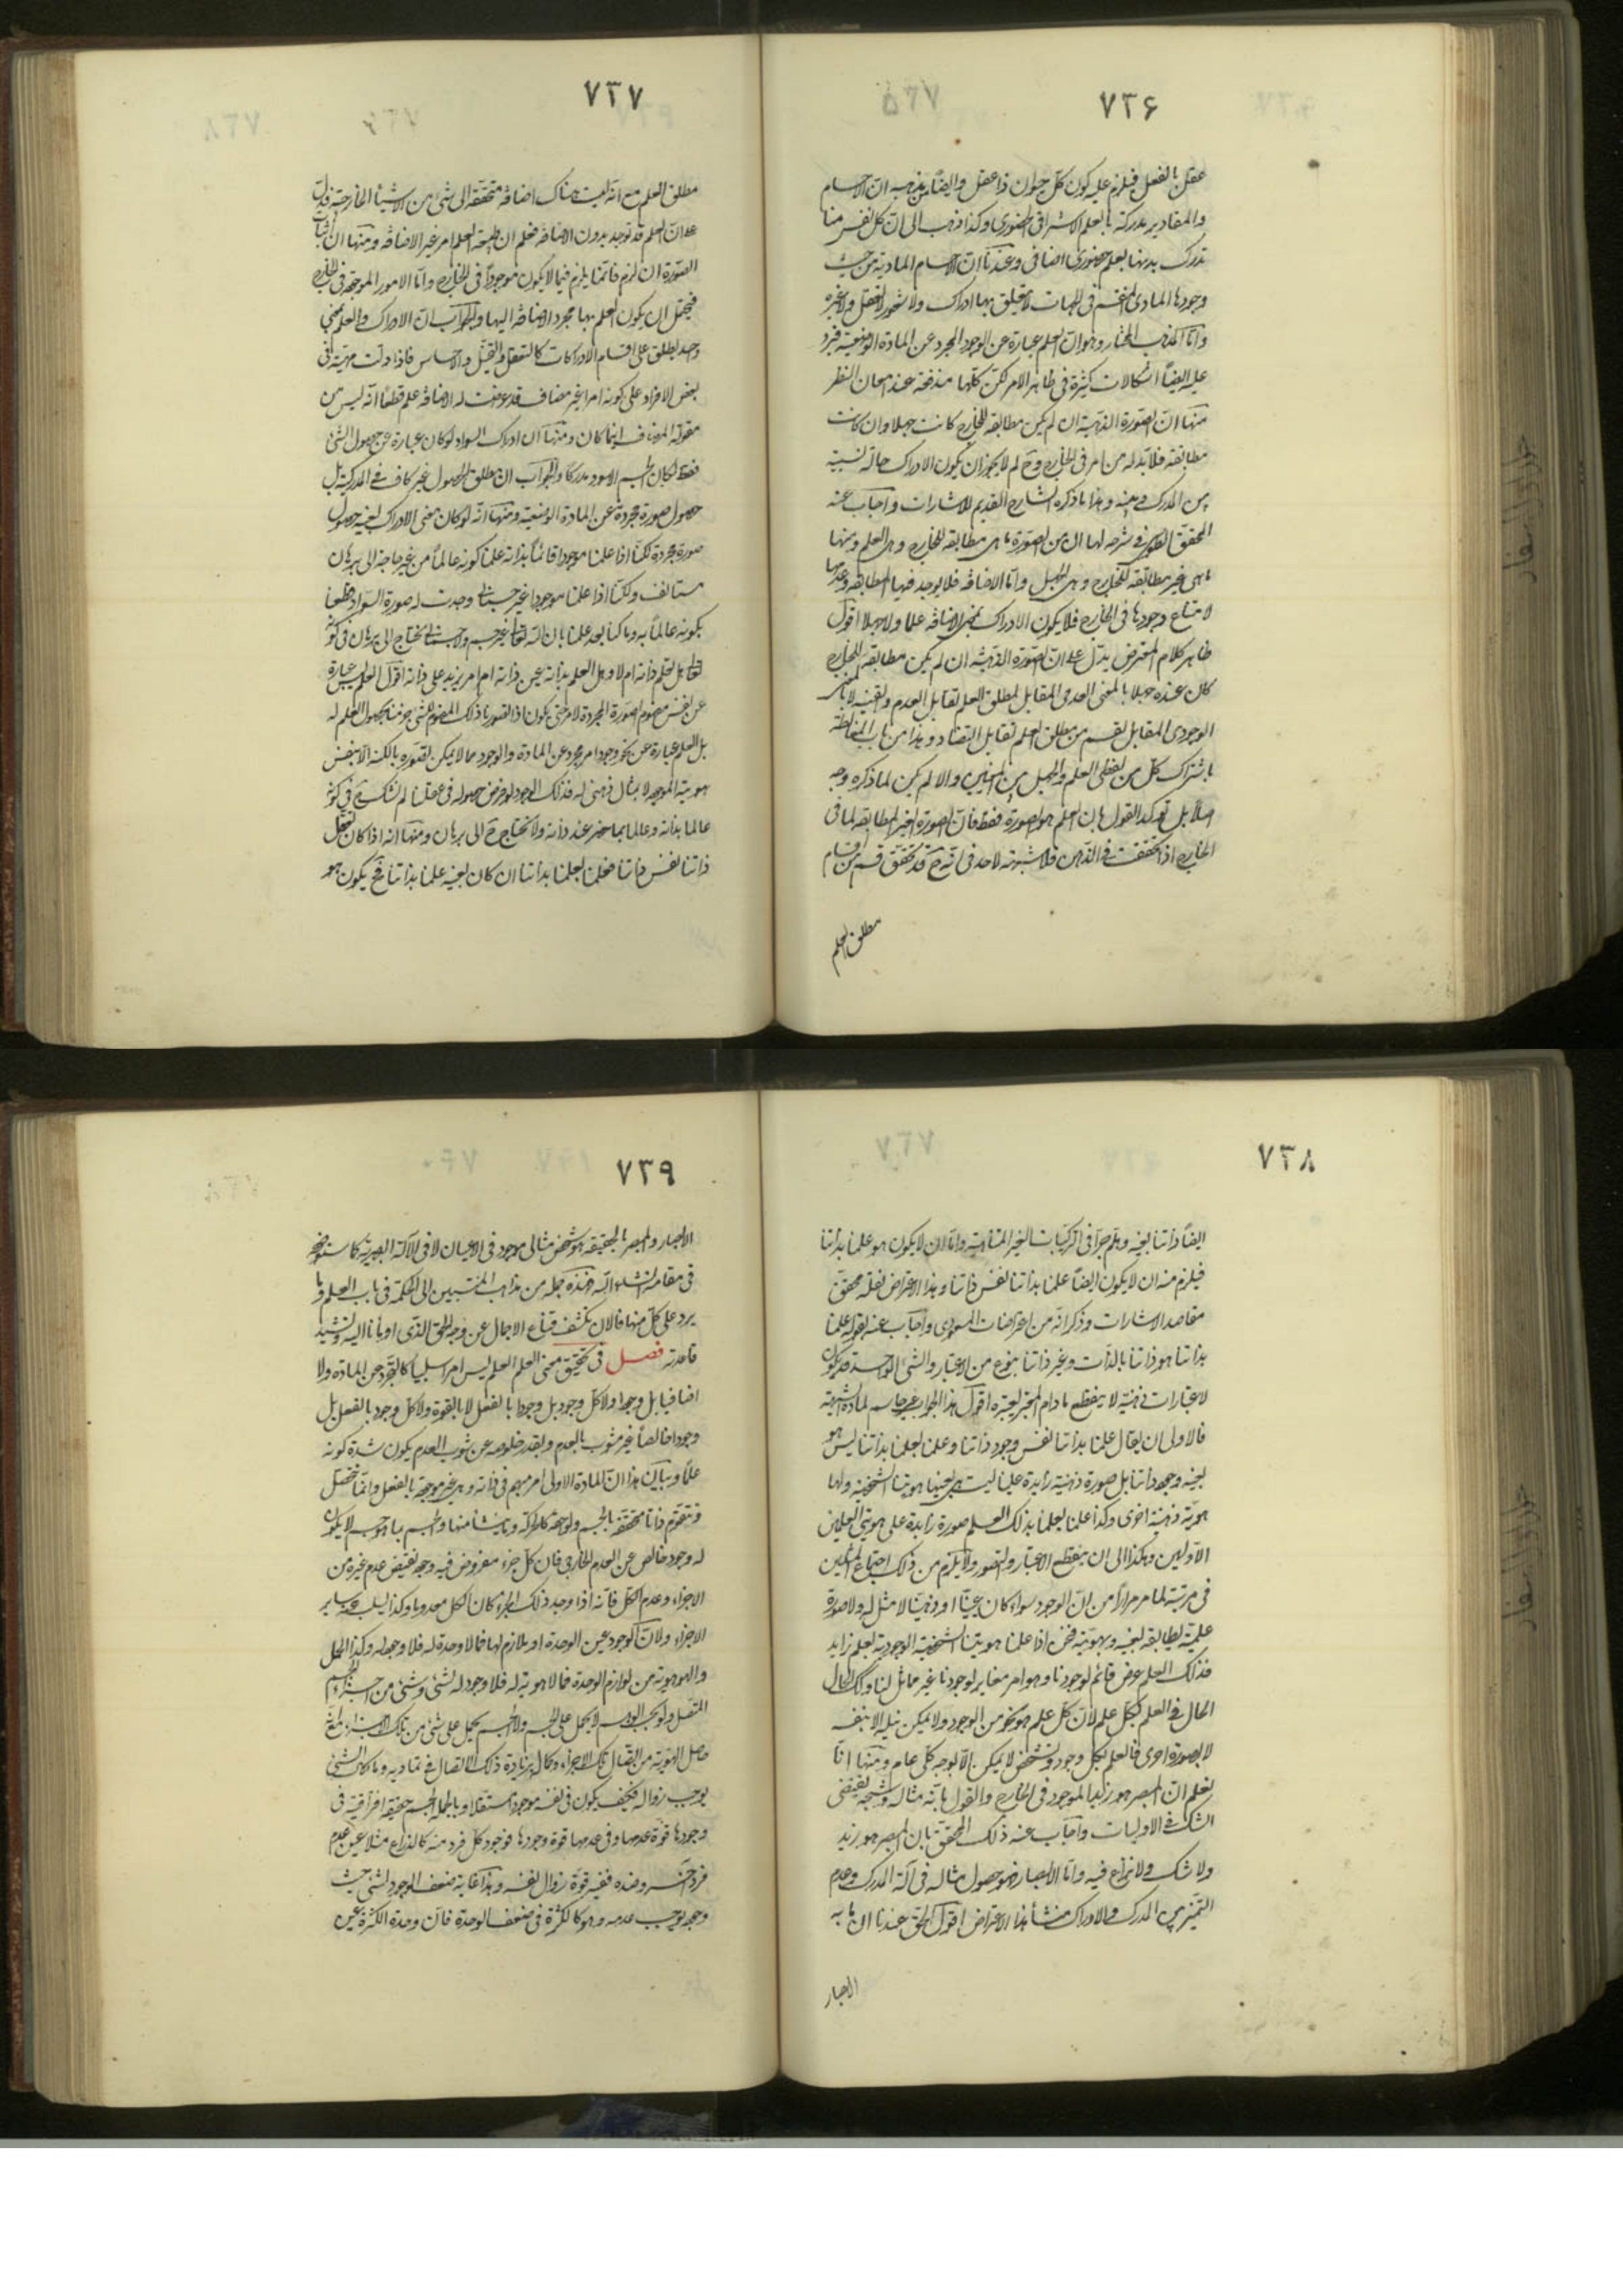 ٧٣۶
عقل بالفعل فيلزم عليه كون كل حيوان ذا عقل وايضا من مذهبه ان الاجسام
والمقادير مدركة بالعلم الاشراقى الحضورى وكذا ذهب الى ان كل نفس منا
تدرك بدنها بعلم حضورى اضافى وعندنا ان الاجسام المادية من حيث
وجودها المادى المنقسم فى الجهات لا يتعلق بها ادراك ولا شعور لا لعقل ولا غيره
واما المذهب المختار وهو ان العلم عبارة عن الوجود المجرد عن المادة الوضعية فيرد
عليه ايضا اشكالات كثيرة فى ظاهر الامر لكن كلها مندفعة عند امعان النظر
منها ان الصورة الذهنية ان لم يكن مطابقة للخارج كانت جهلا وان كانت
مطابقة فلا بد له من امر فى الخارج وح لم لا يجوز ان يكون الادراك حالة نسبية
بين المدرك وبينه وهذا ما ذكره الشارح القديم للاشارات واجاب عنه
المحقق الطوسى فى شرحه لها ان من الصورة ما هى مطابقة للخارج وهى العلم ومنها
ما هى غير مطابقة للخارج وهى الجهل واما الاضافة فلا يوجد فيها المطابقة وعدمها
لامتناع وجودها فى الخارج فلا يكون الادراك بمعنى الاضافة علما ولا جهلا اقول
ظاهر كلام المعترض يدل على ان الصورة الذهنية ان لم يكن مطابقة للخارج
كان عنده جهلا بالمعنى العدمى المقابل لمطلق العلم تقابل العدم والقنية لا بالمعنى
الوجودى المقابل لقسم من مطلق العلم تقابل التضاد وهذا من باب المغالطة
باشتراك كل من لفظى العلم والجهل بين المعنيين والا لم يكن لما ذكره وجه
اصلا بل يؤكد القول بان العلم هو الصورة فقط فان الصورة الغير المطابقة لما فى
الخارج اذا تحققت فى الذهن فلا شبهة لاحد فى انه ح قد تحقق قسم من اقسام
مطلق العلم
٧٣٧
مطلق العلم مع انه ليست هناك اضافة متحققة الى شئ من الاشياء الخارجية فدل
على ان العلم قد توجد بدون الاضافة فعلم ان طبيعة العلم امر غير الاضافة ومنها ان اثبات
الصورة ان لزم فانما يلزم فيما لا يكون موجودا فى الخارج واما الامور الموجودة فى الخارج
فيحتمل ان يكون العلم بها مجرد الاضافة اليها والجواب ان الادراك والعلم بمعنى
واحد يطلق على اقسام الادراكات كالتعقل والتخيل والاحساس فاذا دلت مهيته فى
بعض الافراد على كونه امرا غير مضاف قد عرضت له الاضافة علم قطعا انه ليس من
مقولة المضاف اينما كان ومنها ان ادراك السواد لو كان عبارة عن حصول الشئ
فقط لكان الجسم الاسود مدركا والجواب ان مطلق الحصول غير كاف فى المدركية بل
حصول صورة مجردة عن المادة الوضعية ومنها انه لو كان معنى الادراك بعينه حصول
صورة مجردة لكنا اذا علمنا موجودا قائما بذاته علمنا كونه عالما من غير حاجة الى برهان
مستانف ولكنا اذا علمنا موجودا غير جسمانى وجدت له صورة السواد قطعنا
بكونه عالما به وما كنا بعد علمنا بان الله تعالى غير جسم ولا جسمانى نحتاج الى برهان فى كونه
تعالى هل يعلم ذاته ام لا وهل العلم بذاته عين ذاته ام امر يزيد على ذاته اقول العلم ليس عبارة
عن نفس مفهوم الصورة المجردة لامر حتى يكون اذا تصورنا ذلك المفهوم لشئ جزمنا بحصول العلم له
بل العلم عبارة عن نحو وجود امر مجرد عن المادة والوجود مما لا يمكن تصوره بالكنه الا بنفس
هويته الموجودة لا بمثال ذهنى له فذلك الوجود لو فرض حصوله فى عقلنا لم نشك ح فى كونه
عالما بذاته وعالما بما حضر عند ذاته ولا نحتاج ح الى برهان ومنها انه اذا كان تعقل
ذاتنا نفس ذاتنا فعلمنا بعلمنا بذاتنا ان كان بعينه علمنا بذاتنا فح يكون هو
٧٣٨
ايضا ذاتنا بعينه وهلم جرا فى التركيبات الغير المتناهية واما ان لا يكون هو علمنا بذاتنا
فيلزم منه ان لا يكون ايضا علمنا بذاتنا نفس ذاتنا وهذا الاعتراض نقله محقق
مقاصد الاشارات وذكر انه من اعتراضات المسعودى واجاب عنه بقوله علمنا
بذاتنا هو ذاتنا بالذات وغير ذاتنا بنوع من الاعتبار والشئ الواحد قد يكون
له اعتبارات ذهنية لا ينقطع ما دام المعتبر يعتبره اقول هذا الجواب غير حاسم لمادة الشبهة
فالاولى ان يقال علمنا بذاتنا نفس وجود ذاتنا وعلمنا بعلمنا بذاتنا ليس هو
بعينه وجود ذاتنا بل صورة ذهنية زايدة علينا ليست هى بعينها هويتنا الشخصية ولها
هوية ذهنية اخرى وكذا علمنا بعلمنا بذلك العلم صورة زايدة على هويتى العلمين
الاولين وهكذا الى ان ينقطع الاعتبار والتصور ولا يلزم من ذلك اجتماع المثلين
فى مرتبة لما مر مرارا من ان الوجود سواء كان عينيا او ذهنيا لا مثل له ولا صورة
علمية يطابقه بعينه وبهويته فنحن اذا علمنا هويتنا الشخصية الوجودية بعلم زايد
فذلك العلم عرض قائم لوجودنا وهو امر مغاير لوجودنا غير مماثل لنا وكذلك الحال
الحال فى العلم بكل علم لان كل علم هو نحو من الوجود ولا يمكن نيله الا بنفسه
لا بصورة اخرى فالعلم بكل وجود وتشخص لا يمكن الا بوجه كلى عام ومنها انا
نعلم ان المبصر هو زيد الموجود فى الخارج والقول بانه مثاله وشبحه يقتضى
الشك فى الاوليات واجاب عنه ذلك المحقق بان المبصر هو زيد
ولا شك ولا نزاع فيه واما الابصار فهو حصول مثاله فى آلة المدرك وعدم
التمييز بين المدرك والادراك منشأ هذا الاعتراض اقول الحق عندنا ان ما به
الابصار
٧٣٩
الابصار والمبصر بالحقيقة هو شخص مثالى موجود فى الاعيان لا فى الآلة البصرية كما ستوضح
فى مقامه انشاء الله فهذه جملة من مذاهب المنتسبين الى الحكمة فى باب العلم وما
يرد على كل منها فالان نكشف قناع الاجمال عن وجه الحق الذى اومأنا اليه ونشيد
قاعدته فصل فى تحقيق معنى العلم العلم ليس امرا سلبيا كالتجرد عن المادة ولا
اضافيا بل وجودا ولا كل وجود بل وجودا بالفعل لا بالقوة ولا كل وجود بالفعل بل
وجودا خالصا غير مشوب بالعدم وبقدر خلوصه عن شوب العدم يكون شدة كونه
علما وبيان هذا ان المادة الاولى امر مبهم فى ذاته وهى غير موجودة بالفعل وانما تحصل
وتتقوم ذاتا متحققة بالجسم ولواحقه كالحركة وما ينشأ منها والجسم بما هو جسم لا يكون
له وجود خالص عن العدم الخارجى فان كل جزء مفروض فيه وجوده يقتضى عدم غيره من
الاجزاء وعدم الكل فانه اذا وجد ذلك الجزء كان الكل معدوما وكذا يسلب عنه سائر
الاجزاء ولان الوجود عين الوحدة او يلازم لها فما لا وحدة له فلا وجود له وكذا الحمل
والهوهوية من لوازم الوحدة فما لا هوية له فلا وجود له لشئ وشئ من اجزاء الجسم
المتصل لا يحمل على الجسم ولا الجسم يحمل على شئ من تلك الاجزاء مع انه
حاصل الهوية من اتصال تلك الاجزاء وكماله بزيادة ذلك الاتصال فى تماديه وما كان الشئ
يوجب زواله فكيف يكون فى نفسه موجودا مستقلا وبالجملة الجسم حقيقة افتراقية فى
وجودها قوة عدمها وفى عدمها قوة وجودها فوجود كل فرد منه كالذراع مثلا عين عدم
فرد آخر او ضده ففيه قوة زوال نفسه وهذا غاية ضعف الوجود لشئ حيث
وجوده يوجب عدمه وهو كالكثرة فى ضعف الوحدة فان وحدة الكثرة عين